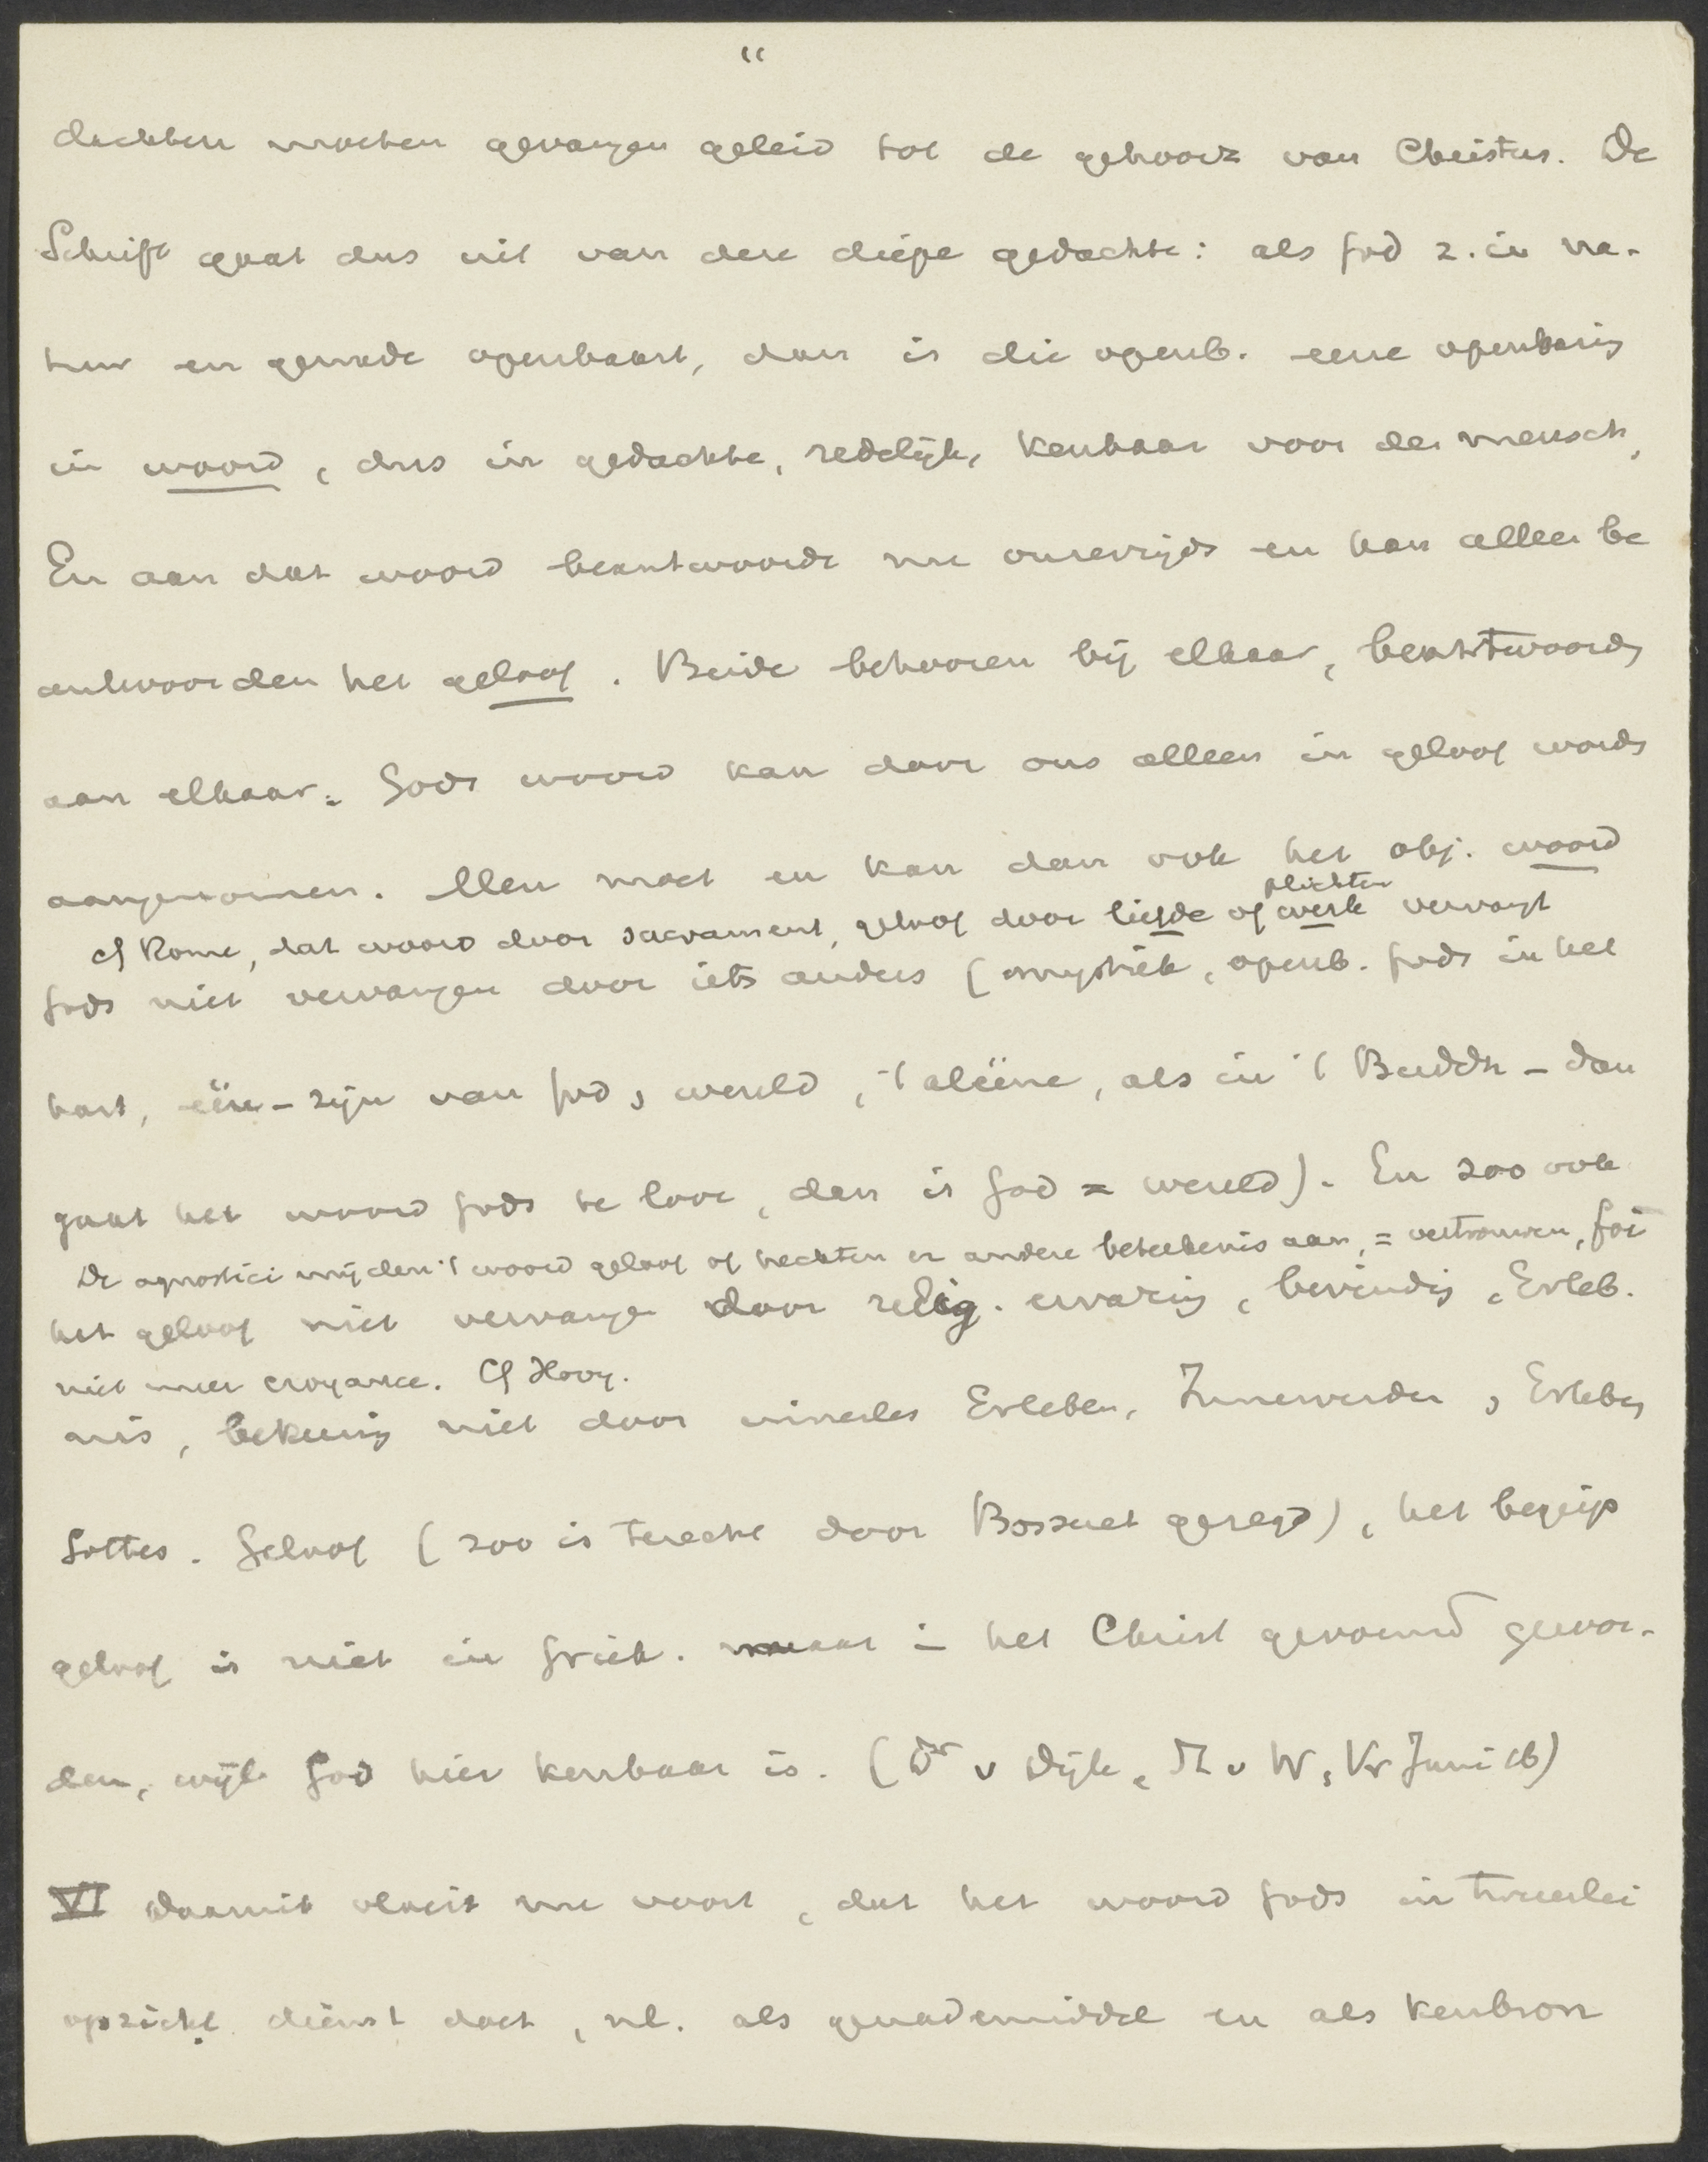 "
dachten moeten gevangen geleid tot de gehoorz van Christus. De
Schrift gaat dus uit van deze diepe gedachte: als God z. in na-
tuur en genade openbaart, dan is die openb. eene openbaring
in woord, dus in gedachte, redelijk, kenbaar voor den mensch,
En aan dat woord beantwoordt nu onzerzijds en kan alleen be
antwoorden het geloof. Beide behooren bij elkaar, beantwoorden
aan elkaar. Gods woord kan door ons alleen in geloof worden
aangenomen. Men moet en kan dan ook het obj. woord
plichten
cf Rome, dat woord door sacrament, geloof door liefde of werk vervangt
Gods niet vervangen door iets anders (mystiek, openb. Gods in het
hart, één-zijn van God, wereld, 't aleéne, als in 't Buddh - dan
gaat het woord Gods te loor, dan is God = wereld). En zoo ook
De agnostici mijden 't woord geloof of hechten er andere beteekenis aan, = vertrouwen, foi
het geloof niet vervangen door relig. ervaring, bevinding, Erleb.
niet meer croyance. Cf Hoog.
nis, bekeering niet door inneres Erleben, Innewerden, Erleben
Gottes. Geloof (zoo is terecht door Bossuet gezegd), het begrip
geloof is niet in Griek. maar in het Christ gevormd gewor-
den, wijl God hier kenbaar is. (Dr v Dijk, St v W, Vr Juni 16)
VI Daaruit vloeit nu voort, dat het woord Gods in tweeërlei
opzicht dienst doet, nl. als genademiddel en als kenbron